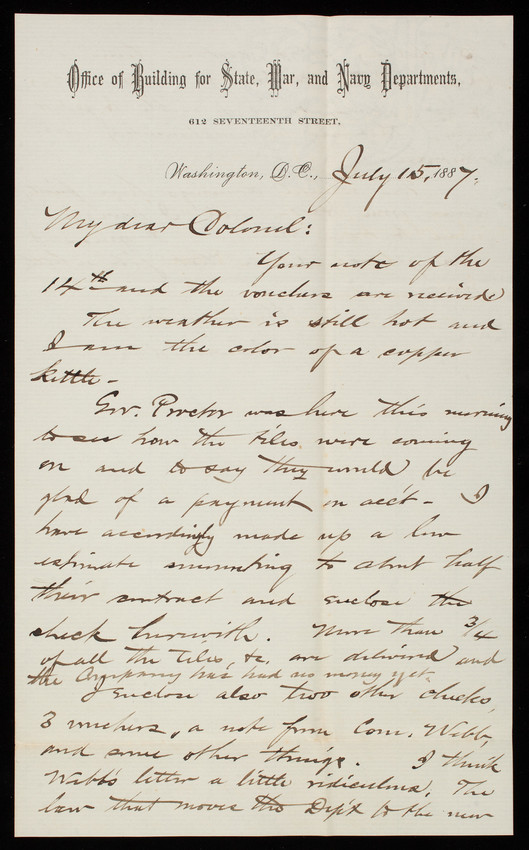 Office of Building for State, War, and Navy Departments,
612 SEVENTEENTH STREET,
Washington, D.C., July 15, 1887.
My dear Colonel:
Your note of the
14th and the vouchers are received
The weather is still hot and
I am the color of a copper
kettle -
Gov. Proctor was here this morning
to see how the tiles were coming
on and to say they would be
glad of a payment on acc't - I
have accordingly made up a low
estimate amounting to about half
their contract and enclose the
check herewith. More than 3/4
of all the tiles, &c. are delivered and
the Company has had no money yet.
I enclose also two other checks,
3 vouchers, a note from Com. Webb,
and some other things. I think
Webb's letter a little ridiculous. The
law that moves the Dep't to the new